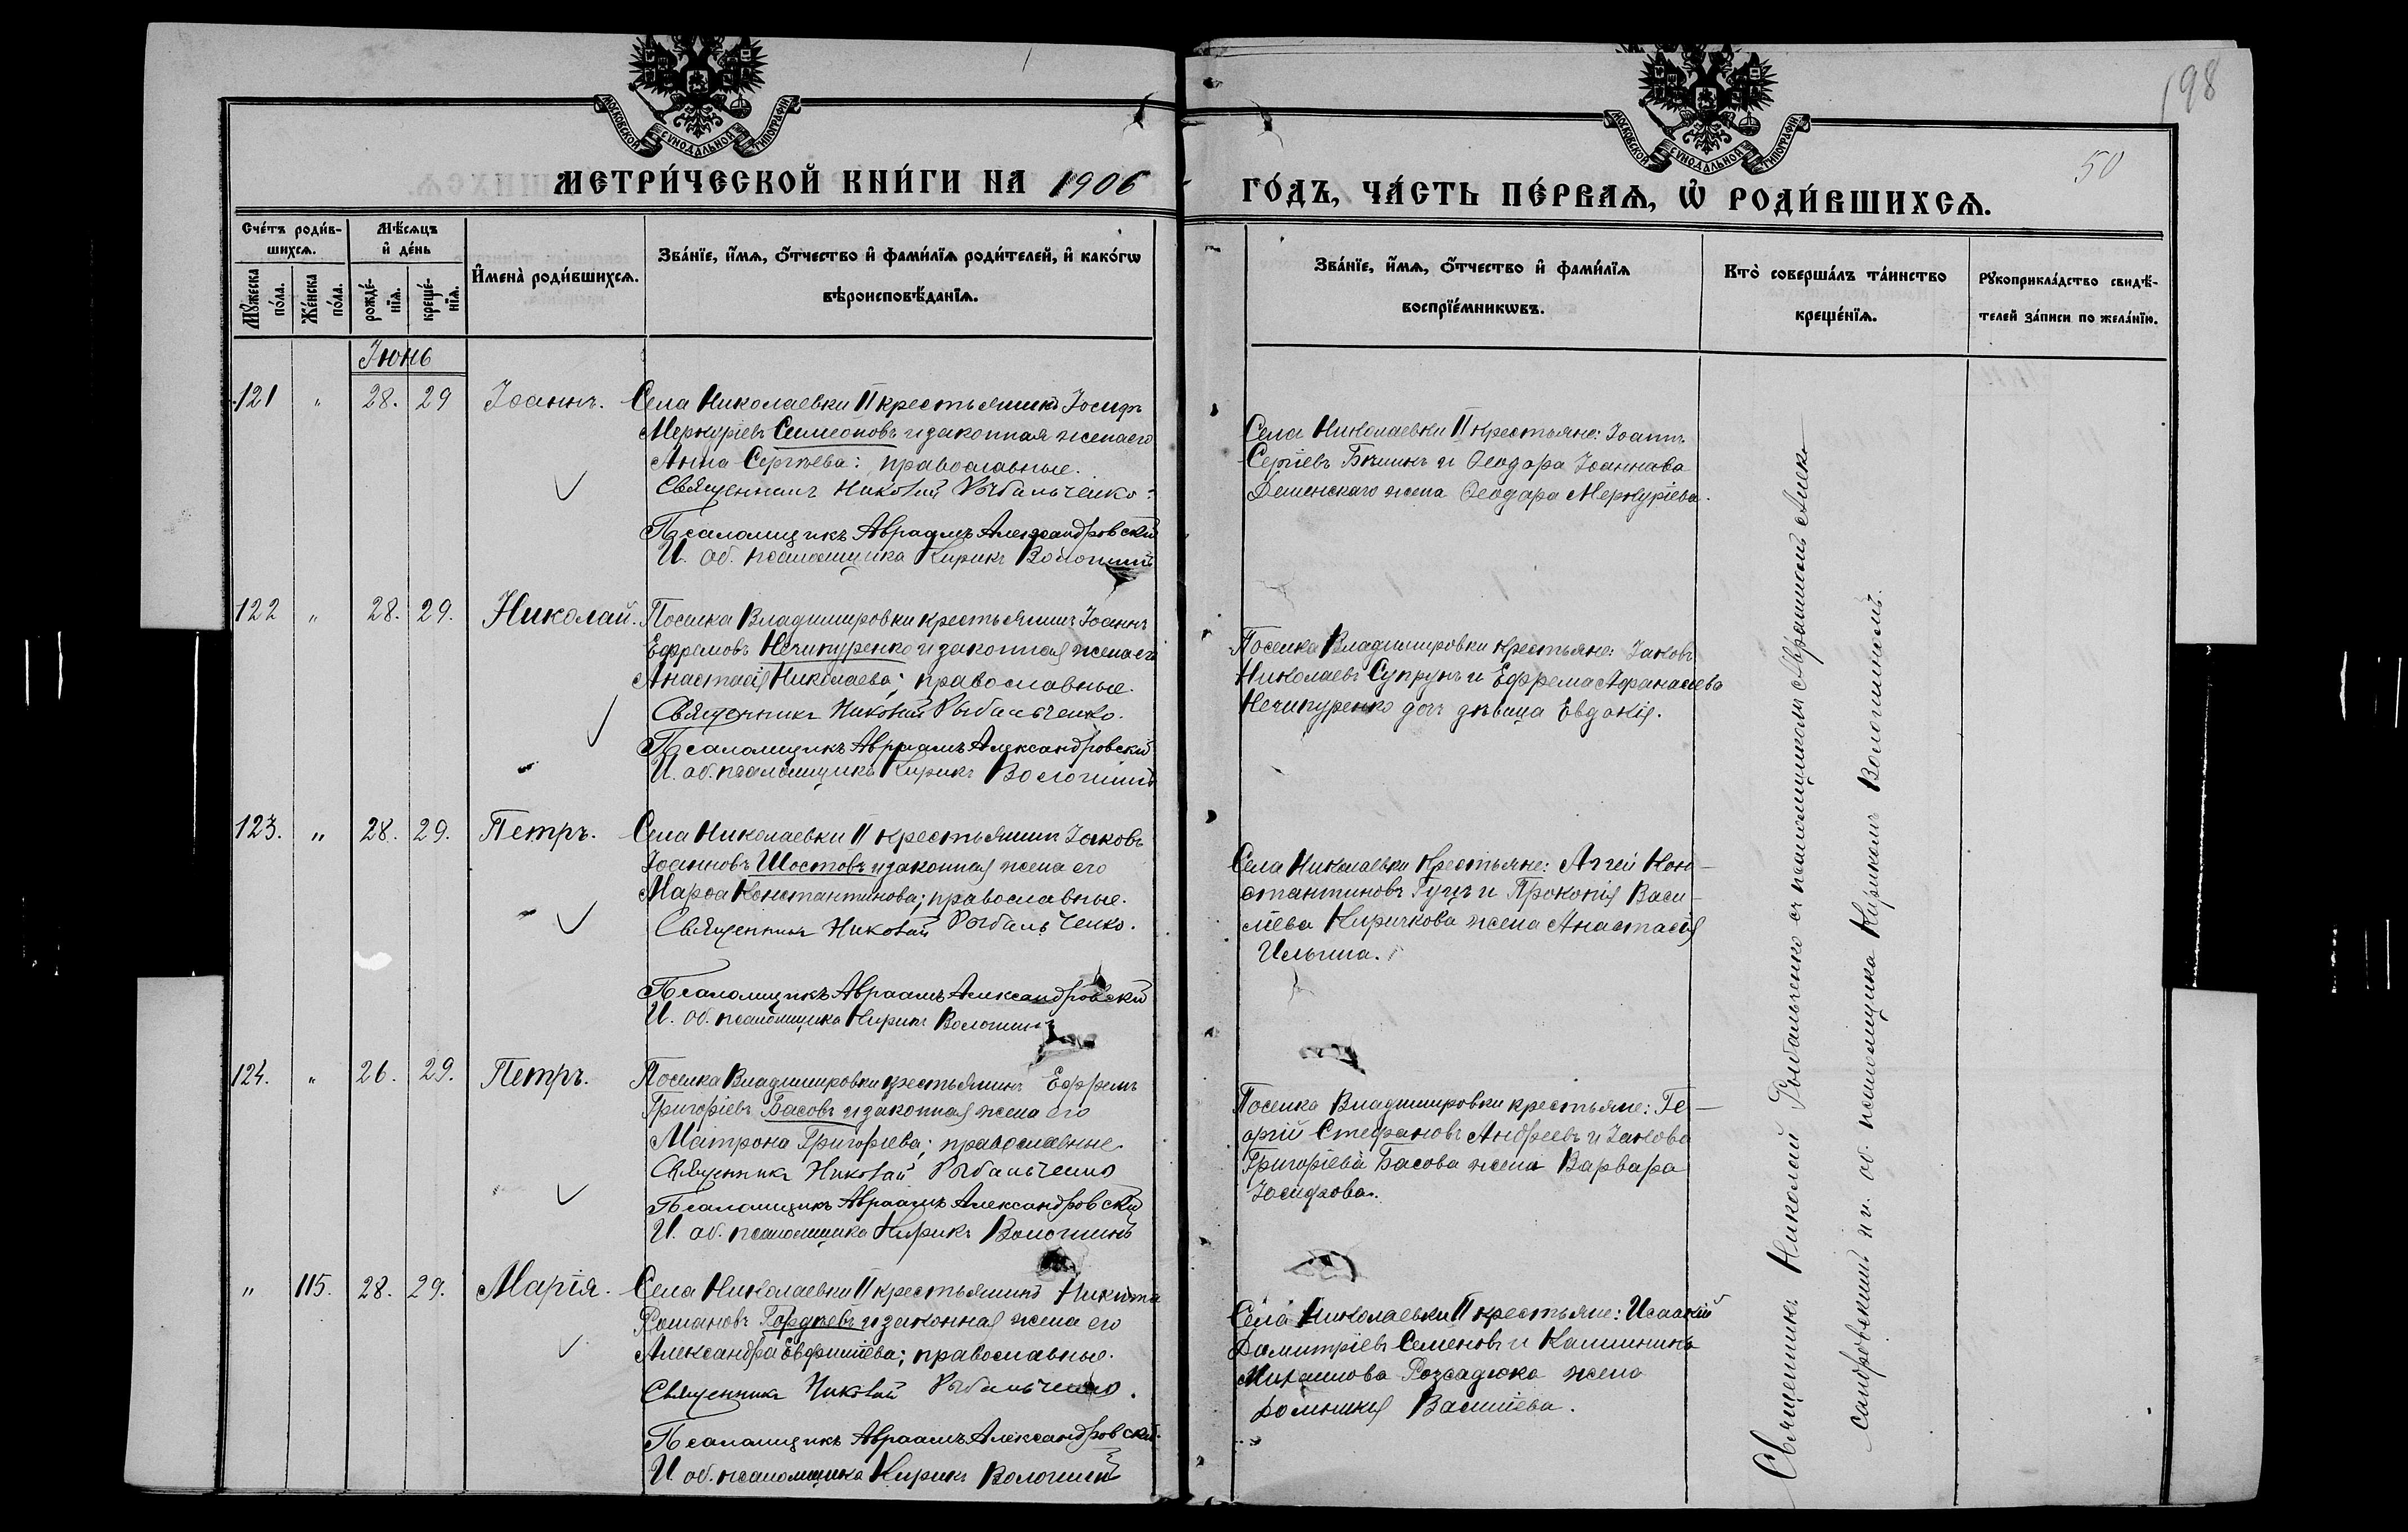 198
50
МОСКОВСКОЙ СУНОДАЛЬНОЙ ТИПОГРАФІИ
МОСКОВСКОЙ СУНОДАЛЬНОЙ ТИПОГРАФІИ
МЕТРИ́ЧЕСКОЙ КНИ́ГИ НА 1906
ГО́ДЪ, ЧА́СТЬ ПЕ́РВАѦ, Ѡ РОДИ́ВШИХСѦ.
Сче́тъ роди́в-
шихсѧ.
Мꙋ́жеска по́ла.
Же́нска по́ла.
Мѣ́сѧцъ
и҆ де́нь
рожде́-
нїѧ.
креще́-
нїѧ.
И҆мена̀ роди́вшихсѧ.
Зва́нїе, и҆́мѧ, ѻ҆́тчество и҆ фами́лїѧ роди́телей, и҆ како́гѡ
вѣроисповѣ́данїѧ.
Зва́нїе, и҆́мѧ, ѻ҆́тчество и҆ фами́лїѧ
воспрїе́мникѡвъ.
Кто̀ соверша́лъ та́инство
креще́нїѧ.
Рꙋкоприкла́дство свидѣ́-
телей за́писи по жела́нїю.
Іюнь
121 " 28. 29 Іоаннъ.
Села Николаевки II крестьянинъ Іосифъ
Меркуріевъ Симеоновъ и законная жена его
Анна Сергѣева: православные.
Священникъ Николай Рыбальченко.
Псаломщикъ Авраамъ Александровскій
И. об. псаломщика Кирикъ Волошинъ
Села Николаевки II крестьяне: Іоаннъ
Сергіевъ и Ѳеодора Іоаннова
жена Ѳеодора Меркуріева.
122 " 28. 29. Николай.
Поселка Владимировки крестьянинъ Іоаннъ
Ефремовъ Нечипуренко и законная жена его
Анастасія Николаева; православные.
Священникъ Николай Рыбальченко.
Псаломщикъ Авраамъ Александровскій
И. об. псаломщика Кирикъ Волошинъ
Поселка Владимировки крестьяне: Іаковъ
Николаевъ Супрунъ и Ефрема Афанасіева
Нечипуренко дочь дѣвица Евдокія.
123. " 28. 29. Петръ.
Села Николаевки II крестьянинъ Іаковъ
Іоанновъ Шостовъ и законная жена его
Марѳа Константинова; православные.
Священникъ Николай Рыбальченко.
Псаломщикъ Авраамъ Александровскій
И. об. псаломщика Кирикъ Волошинъ
Села Николаевки крестьяне: Аггей Кон-
стантиновъ Гуцъ и Прокопія Васи-
ліева Киричкова жена Анастасія
Ильина.
124. " 26. 29. Петръ.
Поселка Владимировки крестьянинъ Ефремъ
Григоріевъ Басовъ и законная жена его
Матрона Григоріева; православные.
Священникъ Николай Рыбальченко
Псаломщикъ Авраамъ Александровскій
И. об. псаломщика Кирикъ Волошинъ
Поселка Владимировки крестьяне: Ге-
оргій Стефановъ Андреевъ и Іакова
Григоріева Басова жена Варвара
Іосифова.
" 115. 28. 29. Марія.
Села Николаевки II крестьянинъ Никита
Романовъ Гордѣевъ и законная жена его
Александра Евфиміева; православные.
Священникъ Николай Рыбальченко.
Псаломщикъ Авраамъ Александровскій
И. об. псаломщика Кирикъ Волошинъ
Села Николаевки II крестьяне: Исаакій
Димитріевъ Семеновъ и
Михаилова Розсадюка жена
Домникія Василіева.
Священникъ Николай Рыбальченко съ псаломщикомъ Авраамомъ Алек-
сандровскимъ и и. об. псаломщика Кирикомъ Волошинымъ.